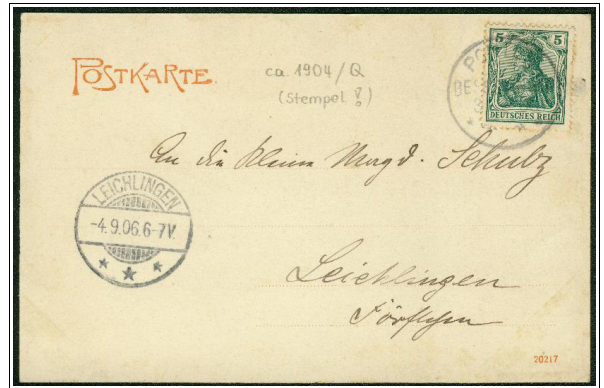 POSTKARTE.
ca. 1904/Q
(Stempel !?)
5 5
DEUTSCHES REICH
An die kleine Magd. Schulz
LEICHLINGEN
-4.9.06.6-7V.
Leichlingen
20217